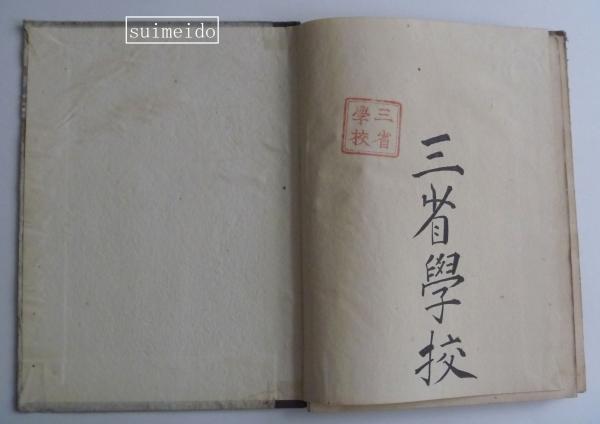 suimeido
三省
學校
三省學校